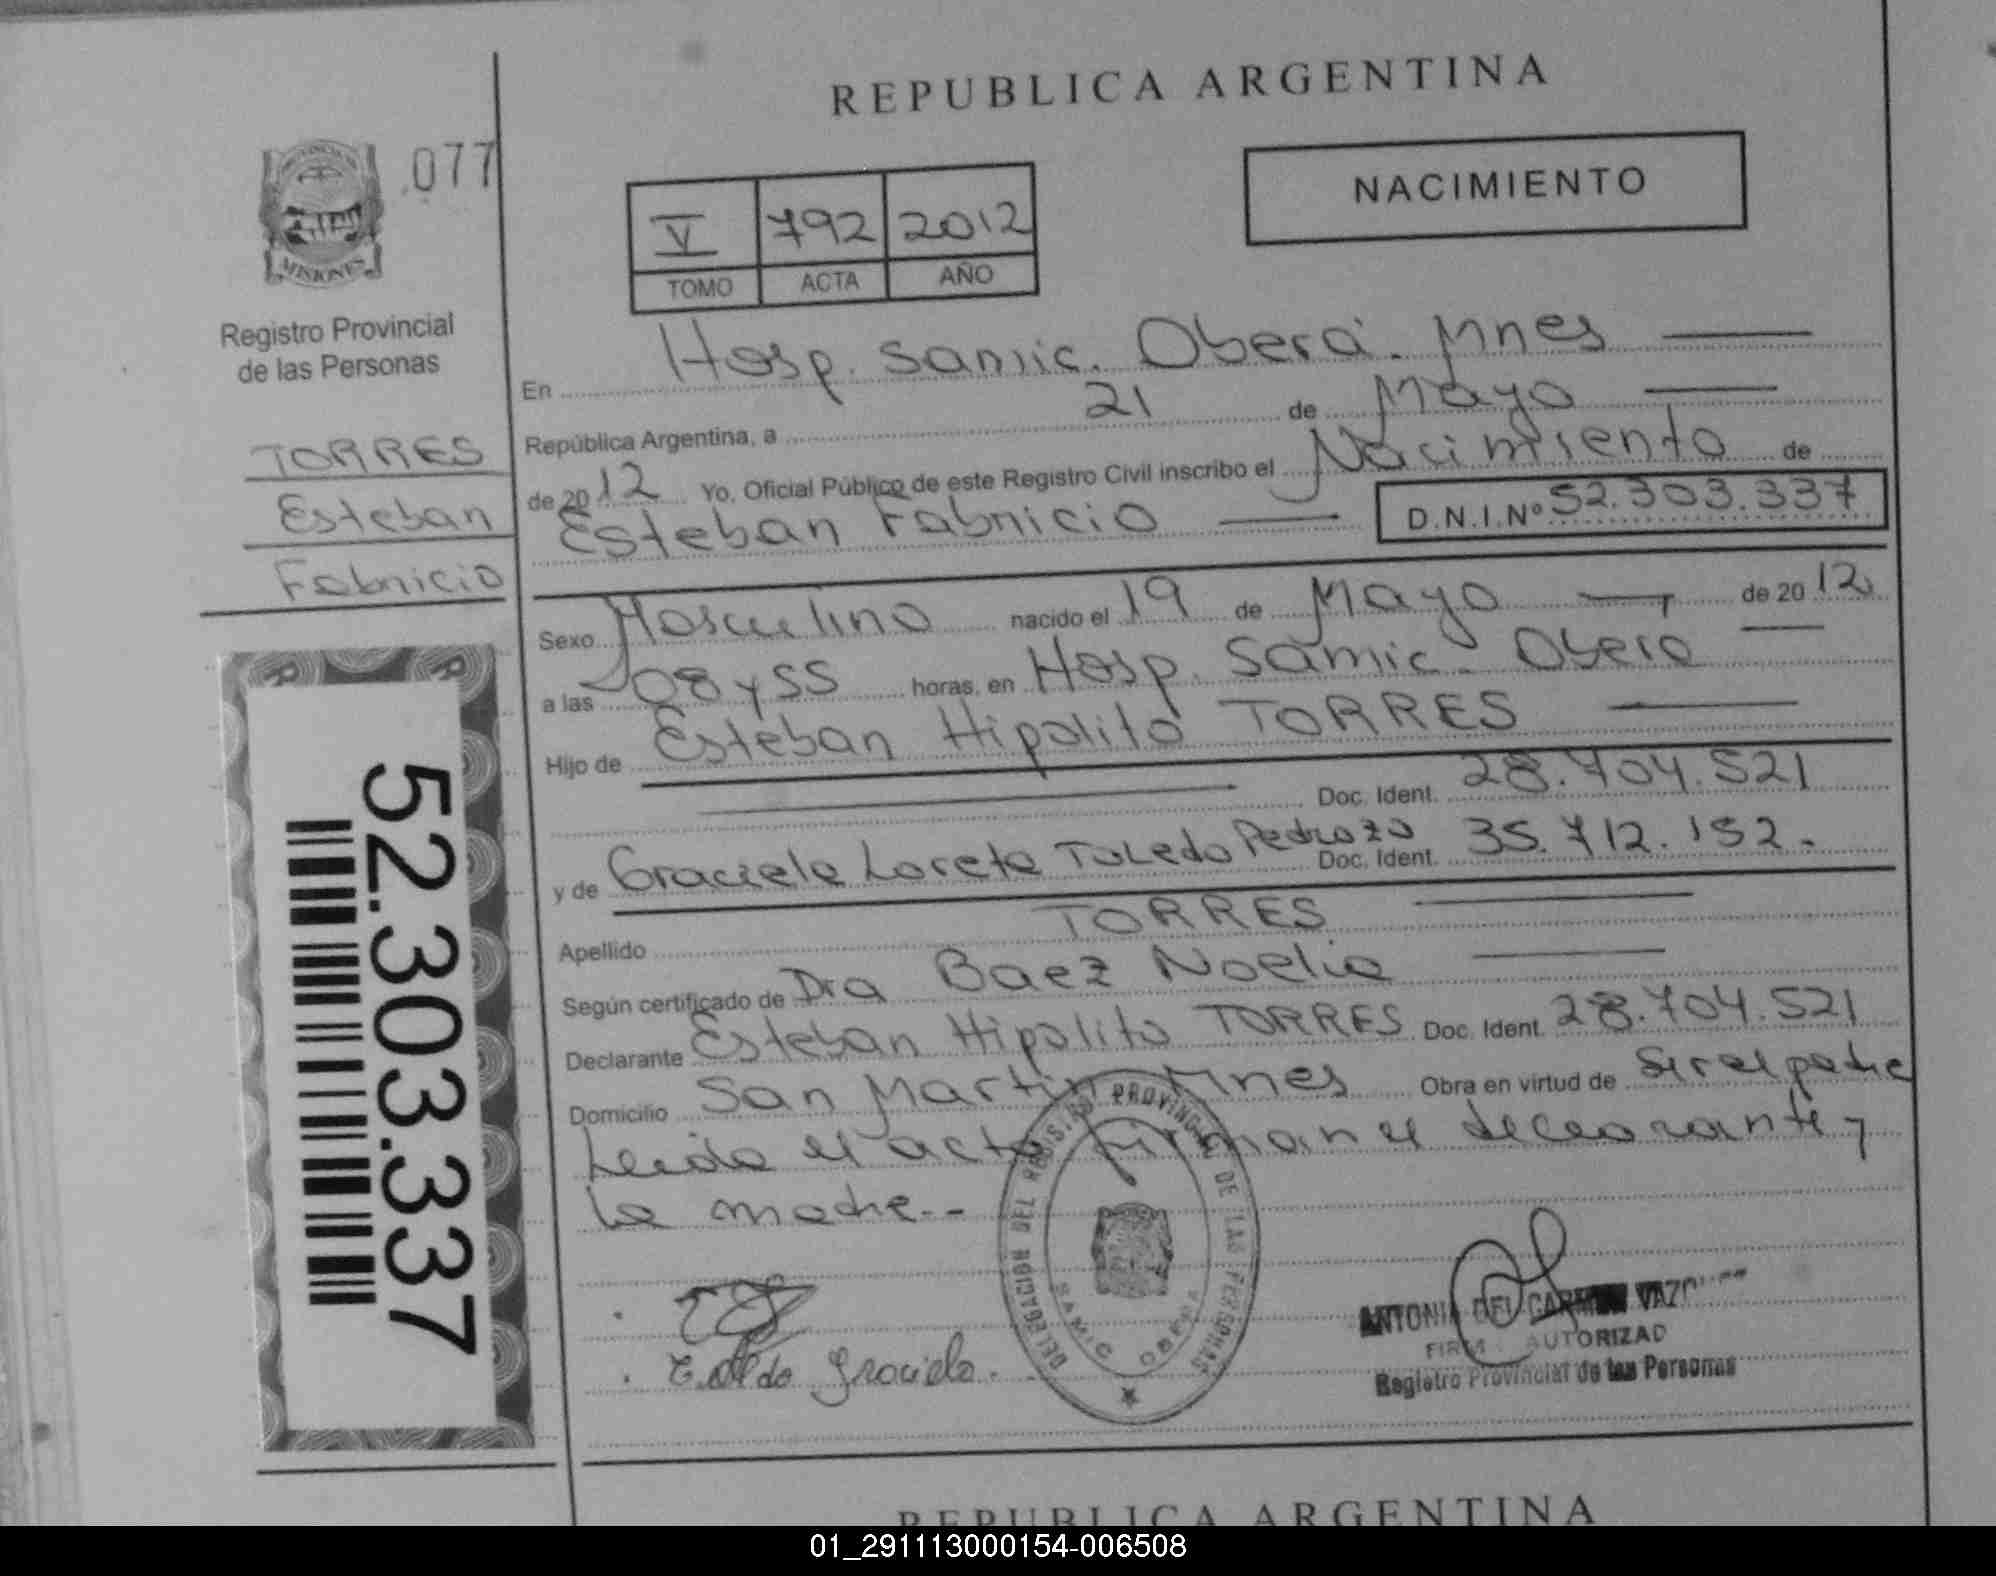 REPUBLICA ARGENTINA
077
MISIONES
NACIMIENTO
V 792 2012
TOMO ACTA AÑO
Registro Provincial
de las Personas
TORRES
Esteban
Fabricio
52.303.337
En Hosp. Samic. Oberá. Mnes
República Argentina, a 21 de Mayo
de 2012 Yo, Oficial Público de este Registro Civil inscribo el Nacimiento de
Esteban Fabricio D.N.I.Nº 52.303.337
Sexo Masculino nacido el 19 de Mayo de 2012
a las 08 y 55 horas, en Hosp. Samic. Oberá
Hijo de Esteban Hipolito TORRES
Doc. Ident. 28.704.521
y de Graciela Loreta Toledo Pedrozo Doc. Ident. 35.712.152.
Apellido TORRES
Según certificado de Dra Baez Noelia
Declarante Esteban Hipolito TORRES Doc. Ident. 28.704.521
Domicilio San Martin Mnes Obra en virtud de Ser el padre
Leida el acta firman el declarante y
la madre.--
DELEGACION DEL REGISTRO PROVINCIAL DE LAS PERSONAS
SAMIC OBERA
Toledo Graciela.
ANTONIA DEL CARMEN
FIRMA AUTORIZAD
Registro Provincial de las Personas
REPUBLICA ARGENTINA
01_291113000154-006508